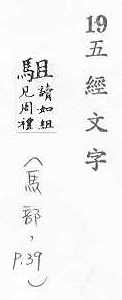 19
五經文字
駔讀如組
見周禮
(馬部,
P.39)